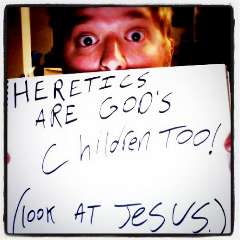 HERETICS
ARE GOD'S
Children TOO!
(look AT JeSUS.)